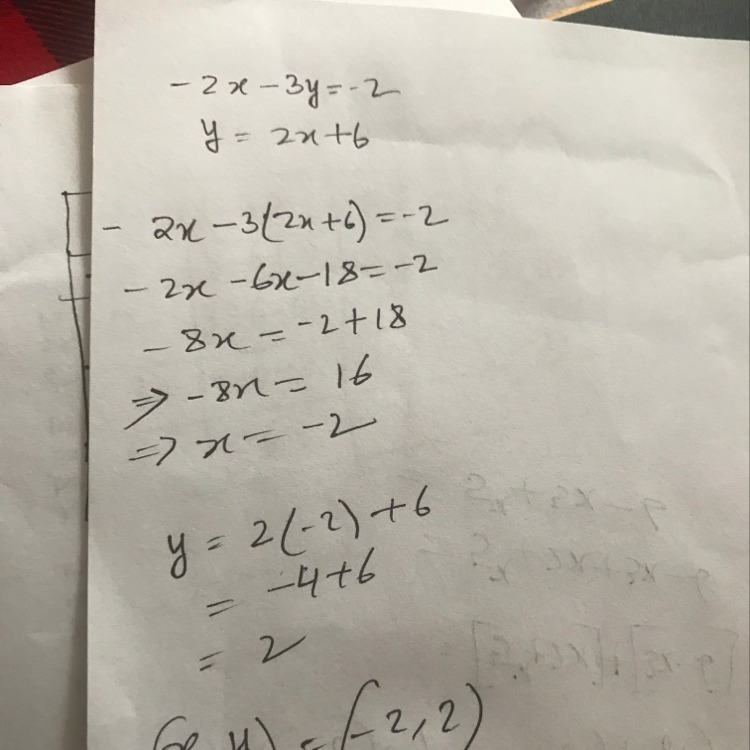 -2x-3y=-2
y = 2x+6
- 2x-3(2x+6)=-2
- 2x-6x-18=-2
-8x=-2+18
⇒ -8x= 16
⇒ x= -2
y = 2(-2)+6
= -4+6
= 2
(x, y) = (-2,2)